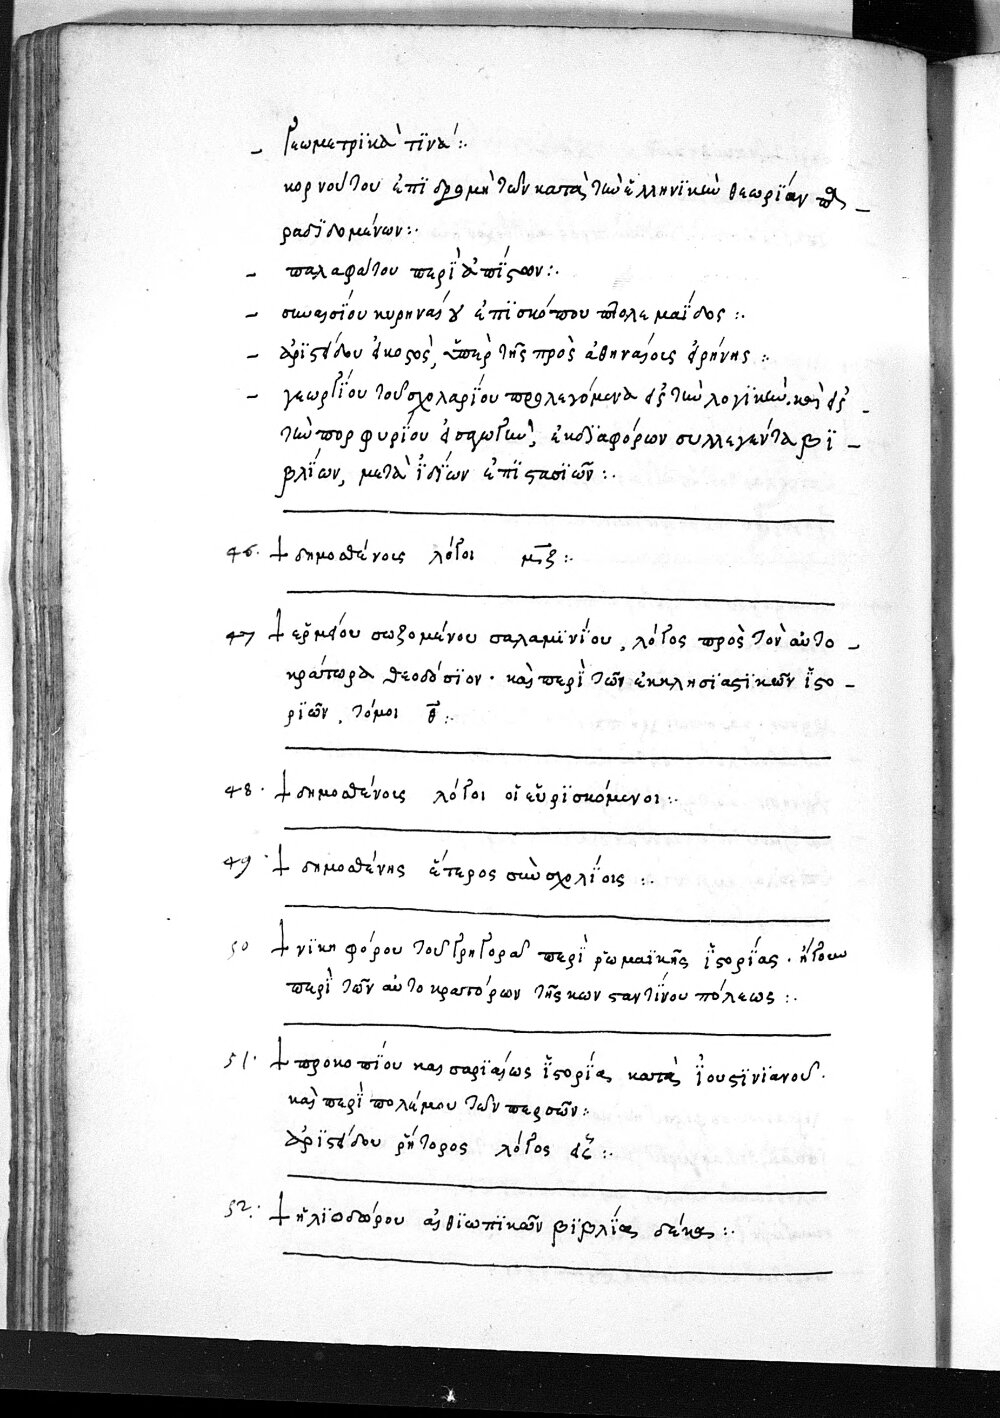 – γεωμετρϊκὰ τϊνά :·
κορνούτου ἐπϊδρομὴ τῶν κατὰ τὴν ἑλληνϊκὴν θεωρΐαν πα–
ραδϊδομένων :·
– παλαφάτου περῒ ἀπΐστων :·
– συνεσΐου κυρηναίου ἐπϊσκόπου πτολεμαΐδος :·
– ἀρϊστείδου εἰκοστὸς, ὑπὲρ τῆς πρὸς ἀθηναίοις εἰρήνης :·
– γεωργΐου τοῦ σχολαρΐου προλεγόμενα εἰς τὴν λογϊκὴν. καὶ εἰς –
τὴν πορφυρΐου εἰσαγωγὴν, ἐκ δϊαφόρων συλλεγέντα βϊ –
βλΐων, μετὰ ἰδΐων ἐπϊστασϊῶν :·
46· † δημοσθένοις λόγοι μζ :·
47 † ἑρμείου σωζομένου σαλαμϊνΐου, λόγος πρὸς τὸν αὐτο –
κράτωρα θεοδόσϊον · καὶ περῒ τῶν ἐκκλησϊαστϊκῶν ἱστο –
ρϊῶν, τόμοι θ :·
48· † δημοσθένοις λόγοι οἱ εὑρϊσκόμενοι :·
49· † δημοσθένης ἕτερος σὺν σχολΐοις :·
50 † νϊκηφόρου τοῦ γρηγορᾶ περῒ ῥωμαϊκῆς ἱστορΐας · ἤγουν
περῒ τῶν αὐτοκρατόρων τῆς κωνσταντΐνου πόλεως :·
51· † προκοπΐου καισαρϊαίως ἱστορΐαι κατὰ ἰουστϊνϊανοῦ ·
καὶ περῒ πολέμου τῶν περσῶν :·
ἀρϊστείδου ῥήτορος λόγος εἷς :·
52· † ἡλϊοδώρου αἰθϊωπϊκῶν βϊβλΐαι δέκα :·